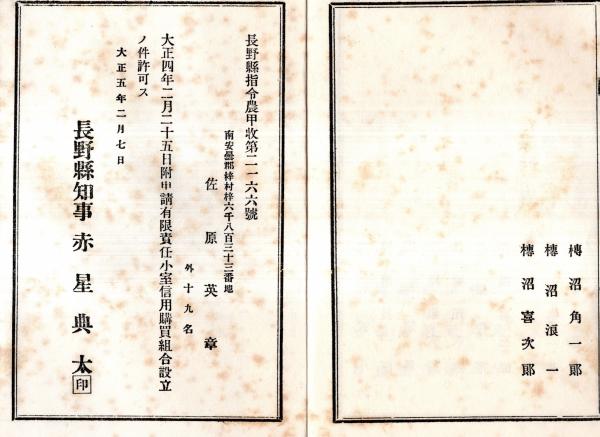 槫沼角一郎
槫沼浪一
槫沼喜次郎
長野縣指令農甲收第二一六六號
南安曇郡梓村梓六千八百三十三番地
佐原英章
外十九名
大正四年二月二十五日附申請有限責任小室信用購買組合設立
ノ件許可ス
大正五年二月七日
長野縣知事赤星典太印